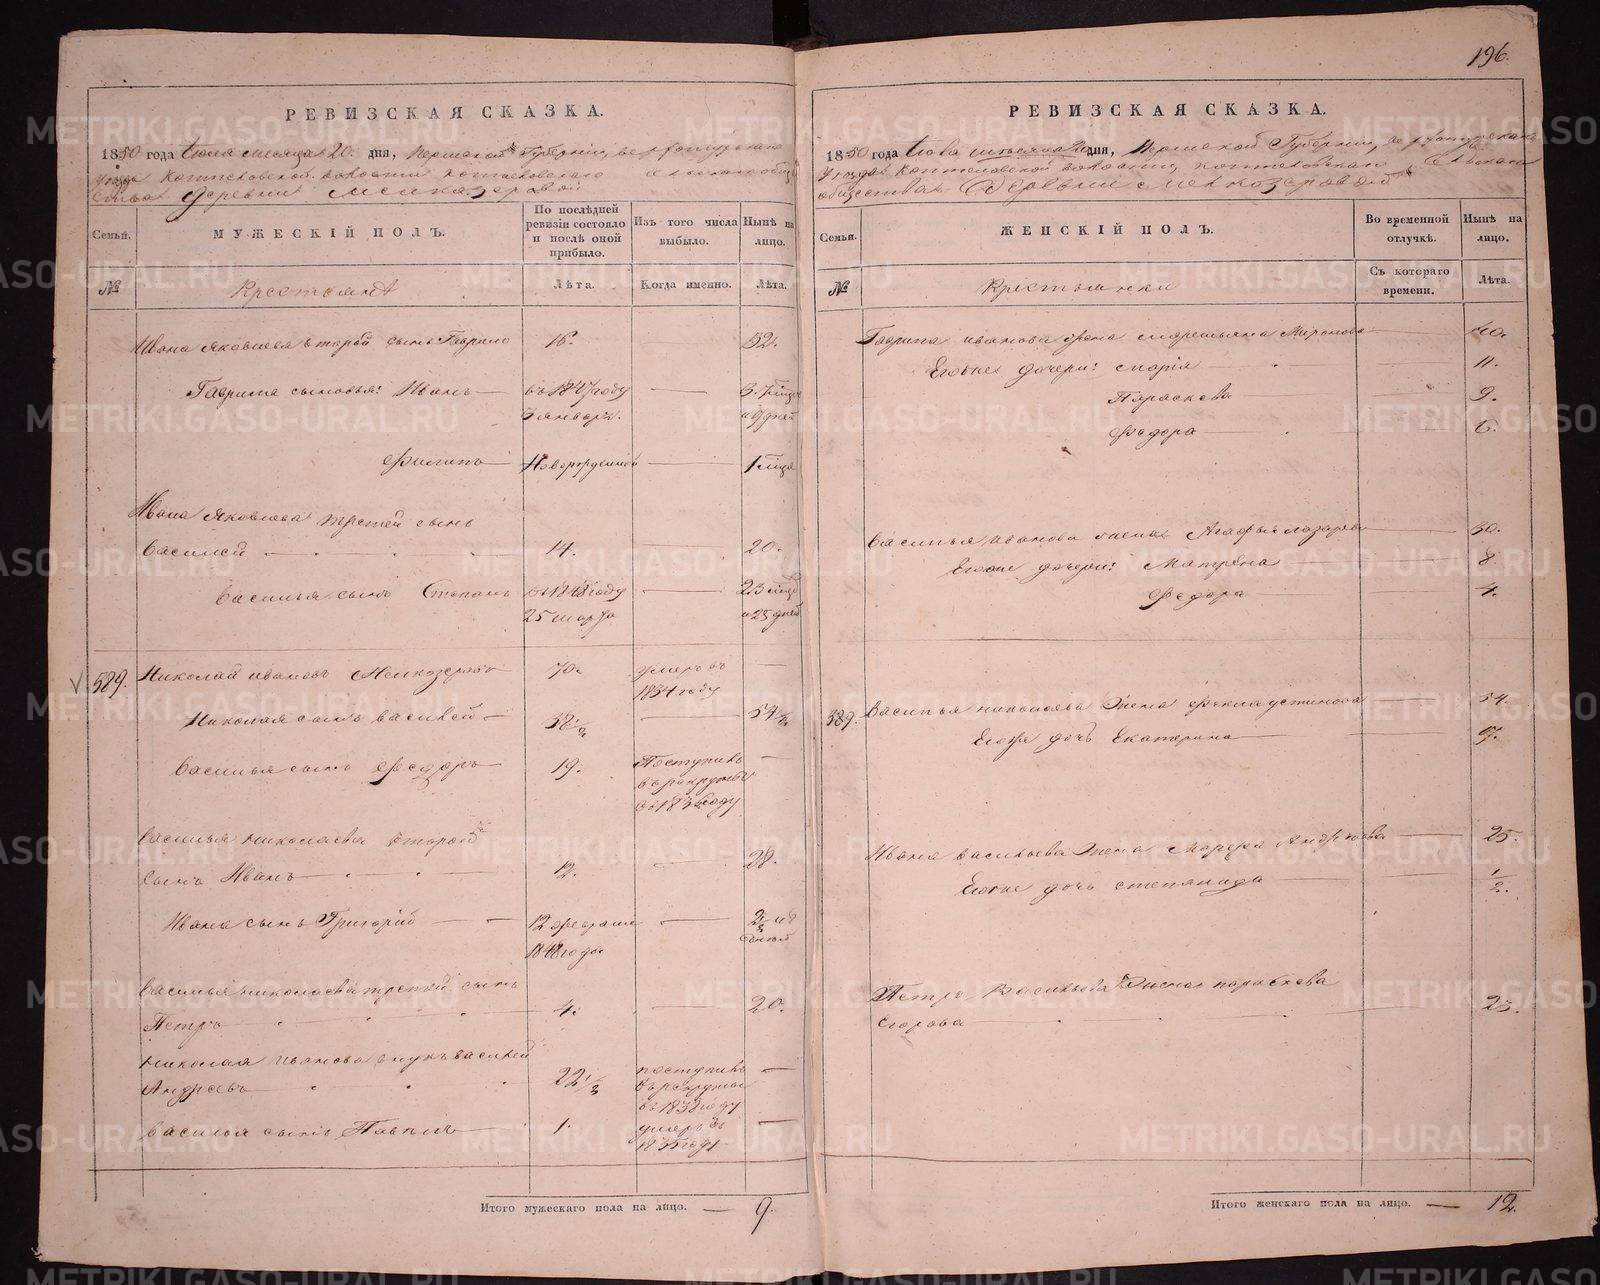 196.
РЕВИЗСКАЯ СКАЗКА.
1850 года Июля месяца 20. дня, Пермской Губернии, Верхотурскаго
Уезда Коптеловской волости Коптеловскаго сельскаго обще
ства Деревни Мелкозеровой
Семьи.
МУЖЕСКІЙ ПОЛЪ.
По послѣдней ревизіи состояло и послѣ оной прибыло.
Изъ того числа выбыло.
Нынѣ на лицо.
№
Крестьяне
Лѣта.
Когда именно.
Лѣта.
Ивана Яковлева вторый сынъ Гаврило 16. 52.
Гаврила сыновья: Иванъ въ 1847 году
3 января.
Филипъ Новорожденной 1 мѣсяц
Ивана Яковлева третей сынъ
Василей 14. 20.
Василья сынъ Степанъ въ 1848 году
25 марта и 25 дней
589. Николай Ивановъ Мелкозеровъ 70. умеръ въ
1834 году
Николая сынъ Василей 38 1/2 54 1/2
Василья сынъ Федоръ 19. Поступилъ
въ рекруты
Василья Николаева второй
сынъ Иванъ 12. 28.
Ивана сынъ Григорій 12 февраля
1848 года
Василья Николаева третей сынъ
Петръ 4. 20.
Николая Иванова внукъ Василей
Андреевъ 22 1/2 поступилъ
въ рекруты
въ 1838 году
Василья сынъ Павелъ 1. умеръ въ
1835 году
Итого мужескаго пола на лицо. — 9.
РЕВИЗСКАЯ СКАЗКА.
1850 года Июля месяца дня, Пермской Губернии, Верхотурскаго
Уезда Коптеловской волости, Коптеловскаго сельскаго
общества Деревни Мелкозеровой
Семьи.
ЖЕНСКІЙ ПОЛЪ.
Во временной отлучкѣ.
Нынѣ на лицо.
№
Крестьянки
Съ котораго времени.
Лѣта.
Гаврила Иванова жена Миронова 40.
Его же дочери: Марія 11.
Параскева 9.
Федора 6.
Василья Иванова жена Агафья Лазарева 30.
Его же дочери: Матрёна 8.
Федора 4.
589. Василья Николаева жена Фекла Устинова 54.
Его же дочь Екатерина
Ивана Васильева жена Марфа 25.
Его же дочь Степанида 1/2.
Петра Васильева жена Параскева
Егорова 23.
Итого женскаго пола на лицо. — 12.
METRIKI.GASO-URAL.RU